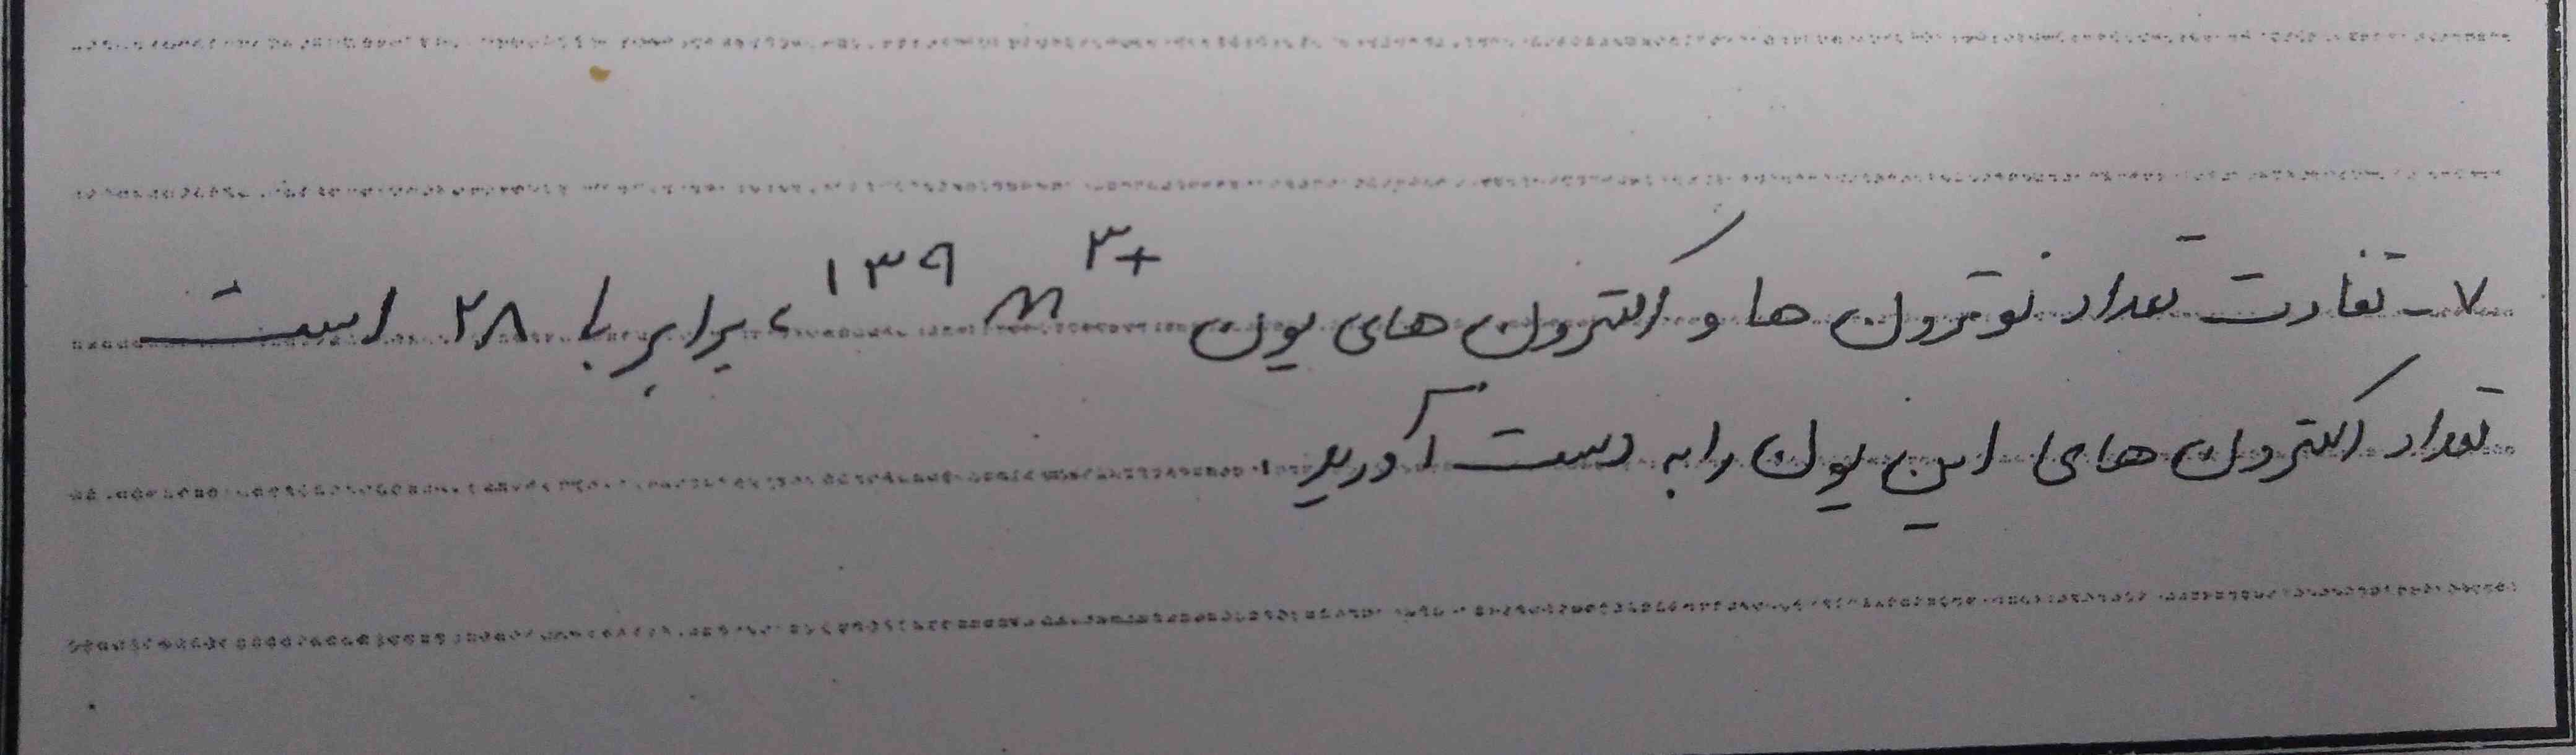 ۷- تفاوت تعداد نوترون ها و الکترون های یون ¹³⁹M³⁺، برابر با ۲۸ است
تعداد الکترون های این یون را به دست آورید.